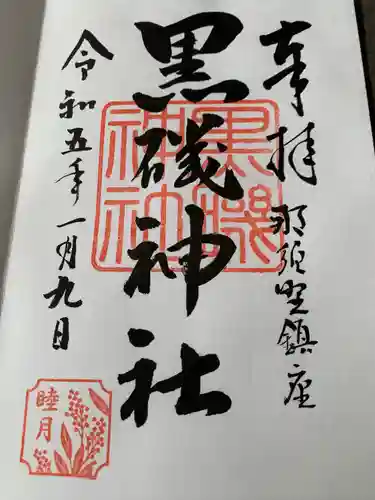 奉拝
那須野鎮座
黒磯神社
黒磯神社
令和五年一月九日
睦月